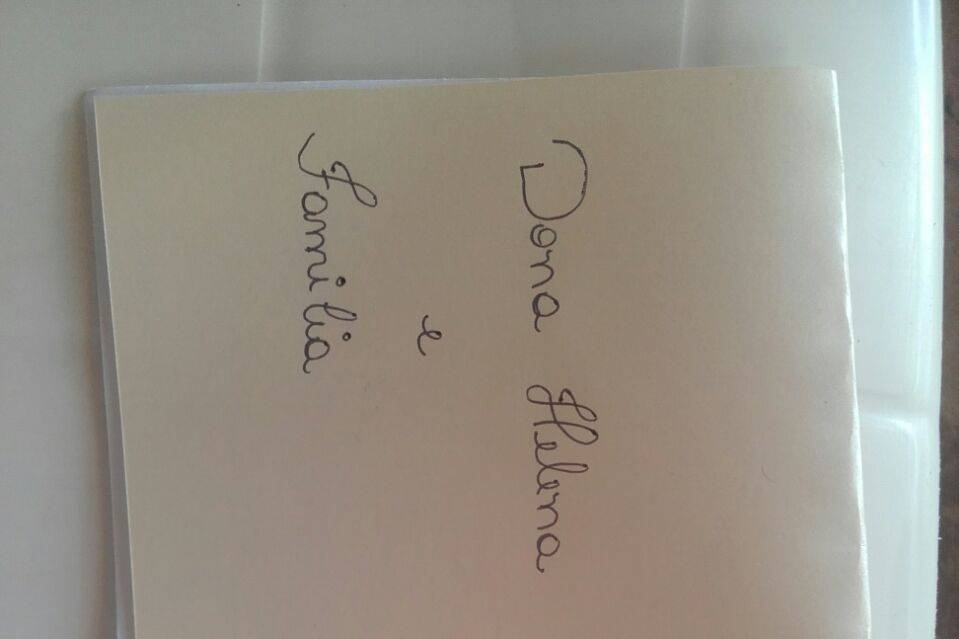 Dona Helena
e
Familia